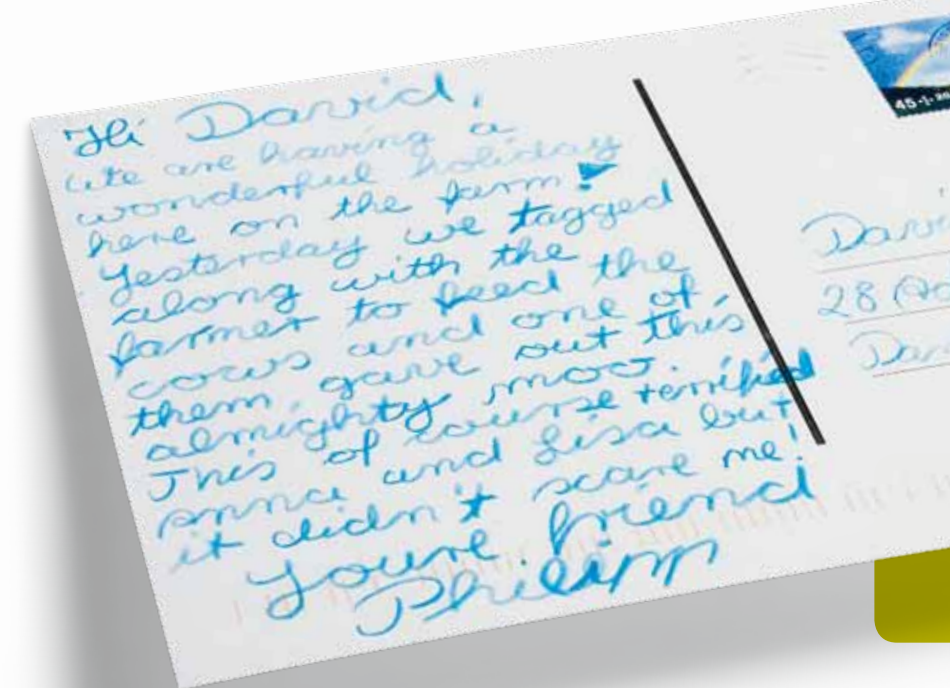 Hi David,
we are having a
wonderful holiday
here on the farm.
Yesterday we tagged
along with the
farmer to feed the
cows and one of
them gave out this
almighty moo.
This of course terrified
anna and Lisa but
it didn't scare me!
Youre friend
Philipp
45
28